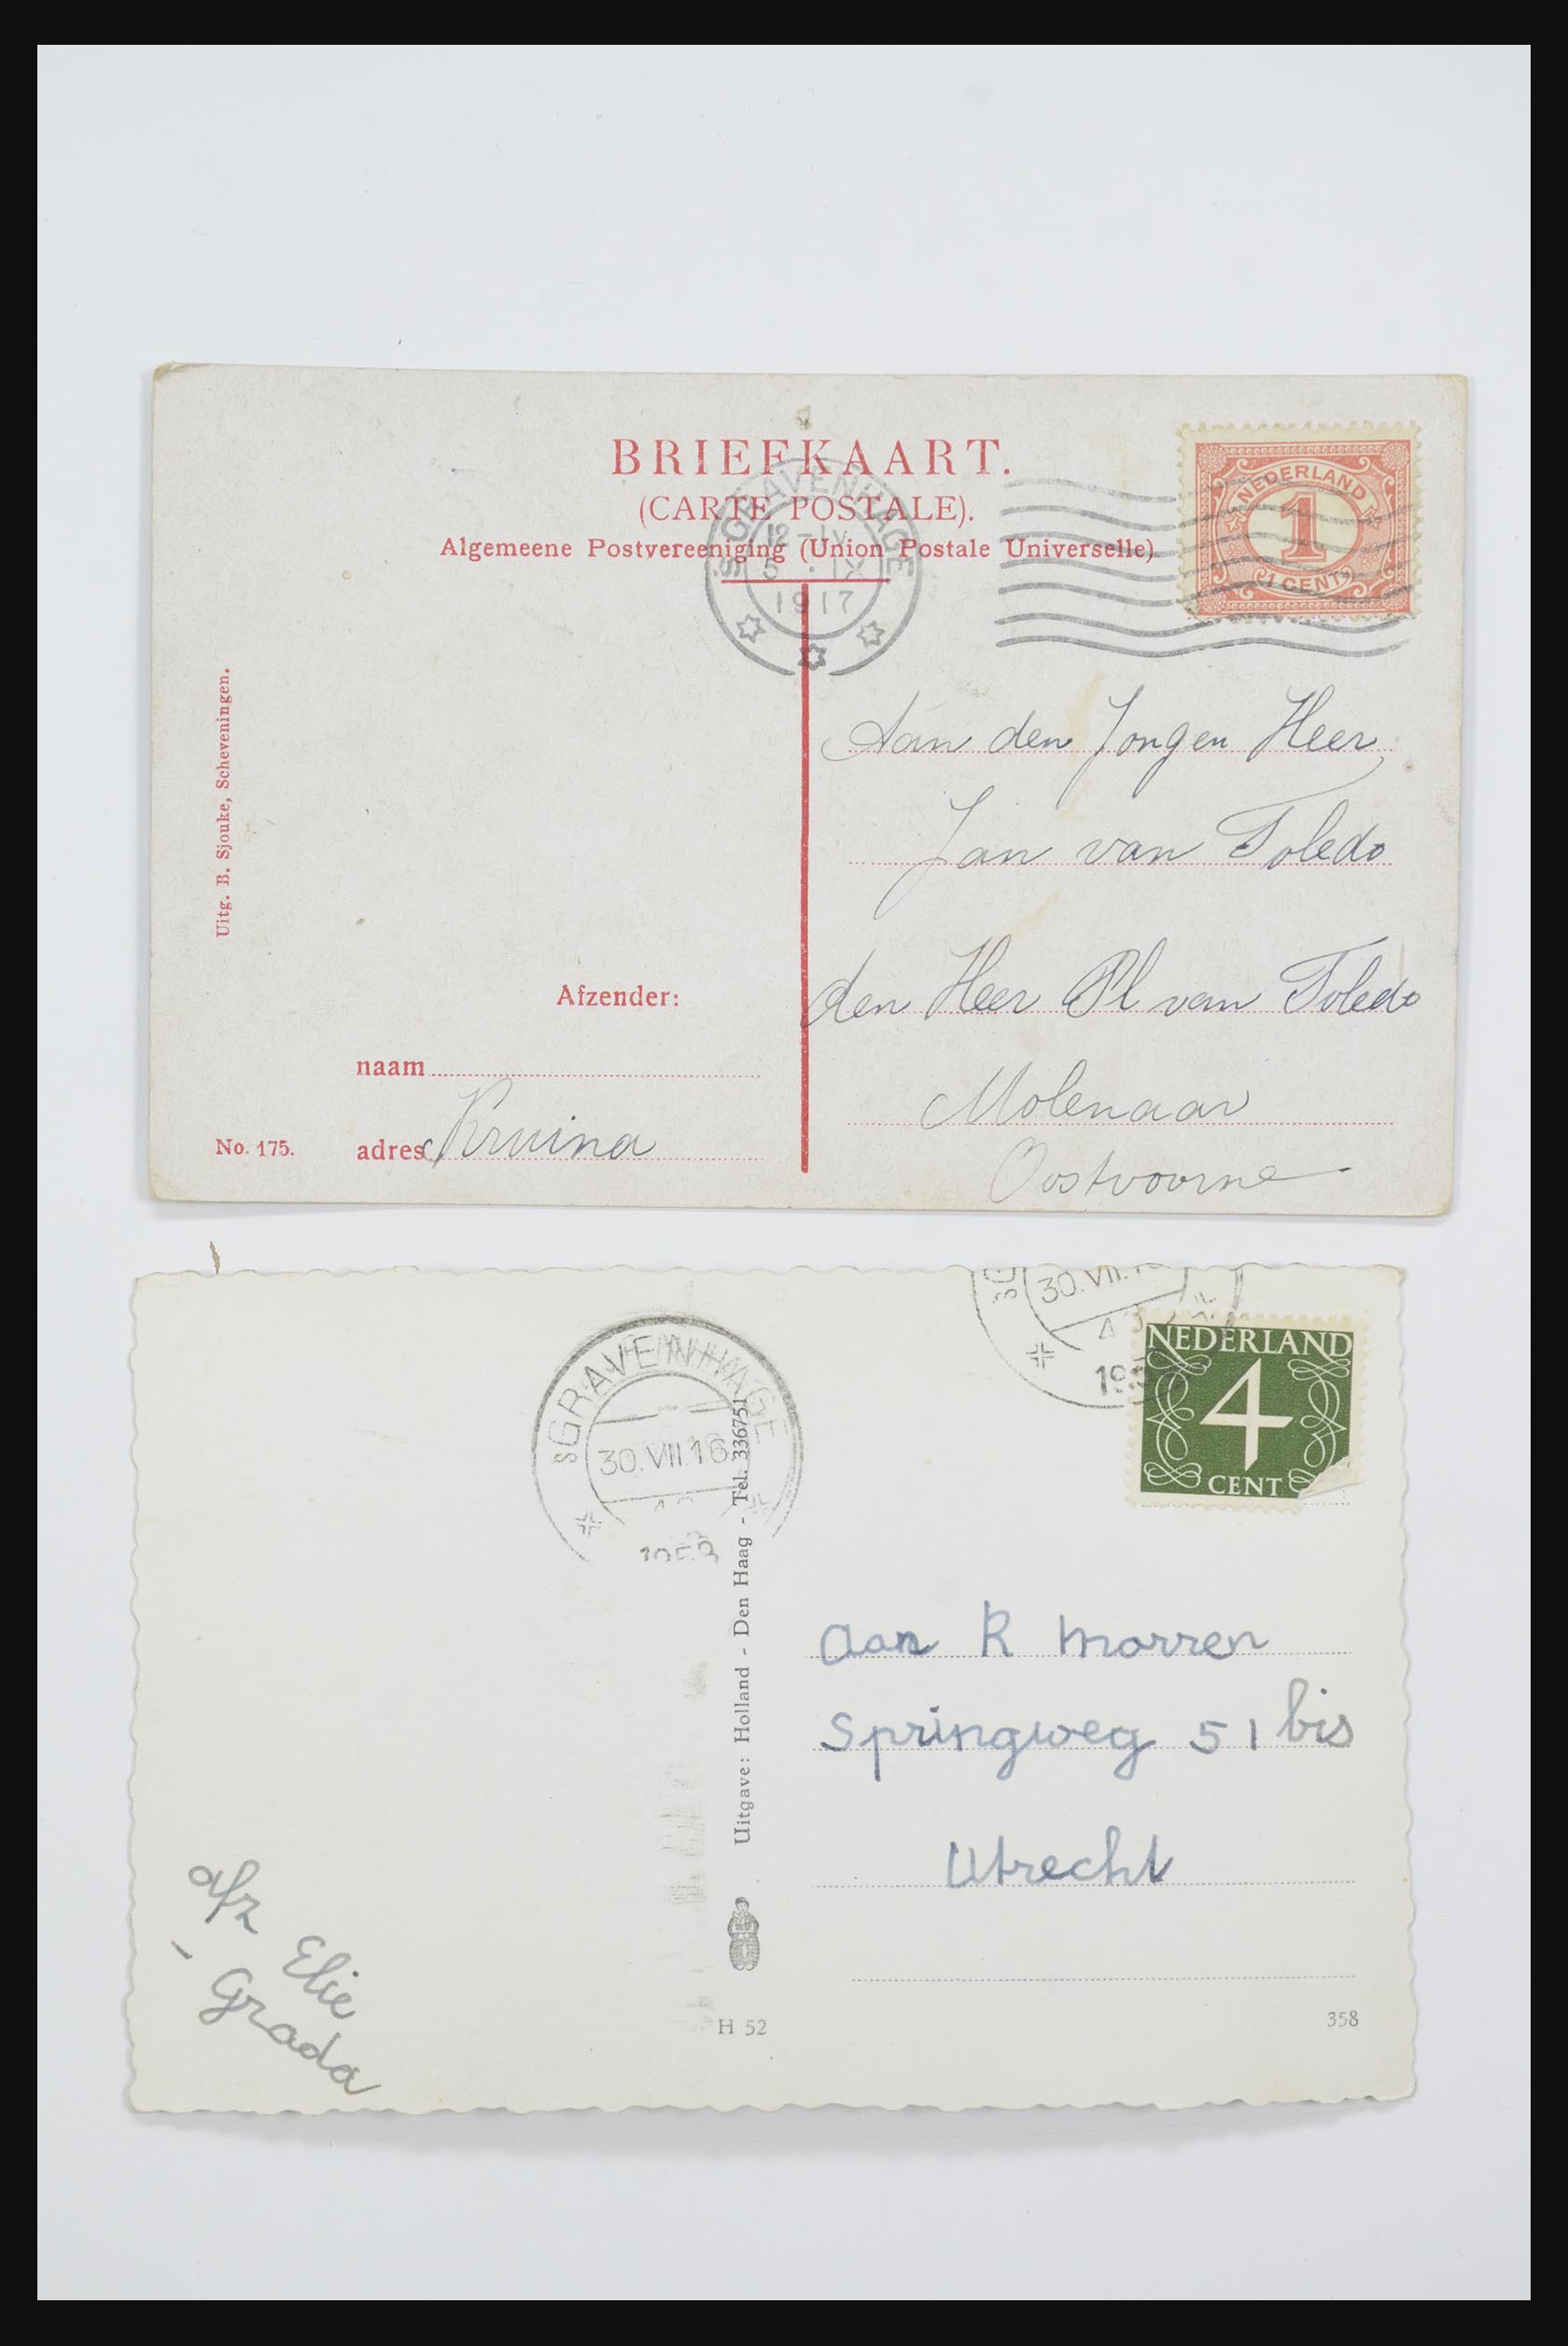 BRIEFKAART.
(CARTE POSTALE).
Algemeene Postvereeniging (Union Postale Universelle)
'S GRAVENHAGE
12-IV
5 · IX
1917
NEDERLAND
1
1 CENT
Uitg. B. Sjouke, Scheveningen.
Aan den Jongen Heer
Jan van Toledo
den Heer Pl van Toledo
Molenaar
Oostvoorne
Afzender:
naam
adres Kruina
No. 175.
SGRAVENHAGE
30.VII.16
1953
30.VII.
NEDERLAND
4
CENT
Uitgave: Holland - Den Haag - Tel. 336751
Aan R Morren
Springweg 51 bis
Utrecht
afz Elie
- Grada
H 52
358